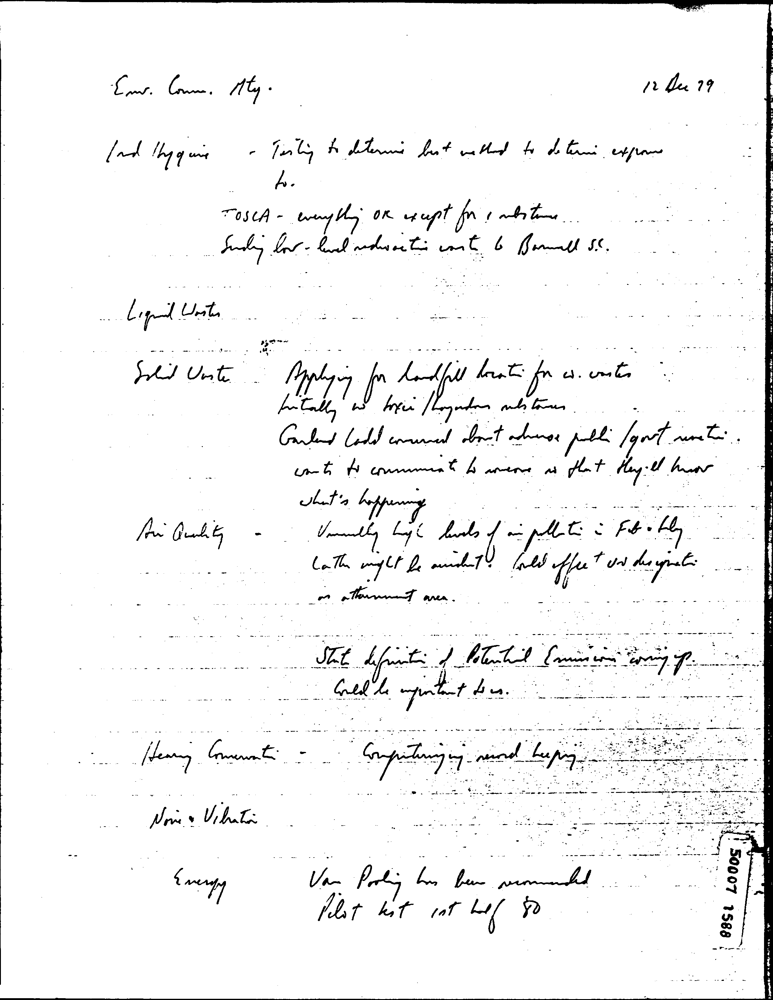 Env. Comm. Mtg. 12 Dec 79
Ind Hygiene - Testing to determine best method to determine exposure
to.
TOSCA - everything OK except for 1 substance
Sending low-level radioactive waste to Barnwell S.C.
Liquid Wastes
Solid Waste Applying for landfill location for wastes
toxic / hazardous substances
concerned about adverse public / gov't reaction.
wants to communicate to so that they'll know
what's happening
Air Quality - Unusually high levels of air pollution
might be Could affect our designation
as attainment area.
State definition of Potential Emissions coming up.
Could be important to us.
Hearing Conservation - Computerizing record keeping
Noise & Vibration
Energy Van Pooling has been recommended
Pilot test 1st half '80
50007 1588